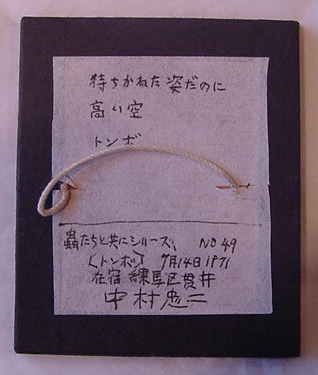 待ちかねた姿だのに
高い空
トンボ
蟲たちと共にシリーズ NO 49
〈トンボ〉 7月14日1971
在宿 練馬区貫井
中村忠二